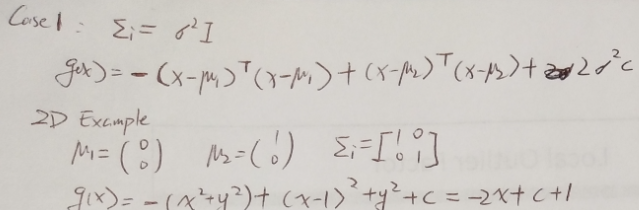 Case 1 : Σi = σ²I
g(x) = - (x-μ₁)ᵀ(x-μ₁) + (x-μ₂)ᵀ(x-μ₂) + 2σ²c
2D Example
μ₁ = (0 0) μ₂ = (1 0) Σi = [1 0 0 1]
g(x) = - (x²+y²) + (x-1)² + y² + c = -2x + c + 1